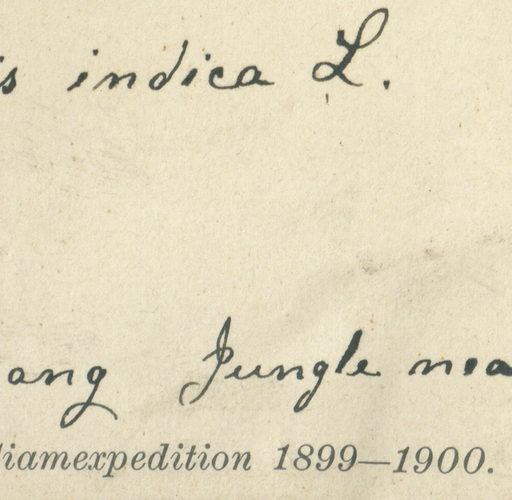 s indica L.
ang Jungle nea
iamexpedition 1899—1900.